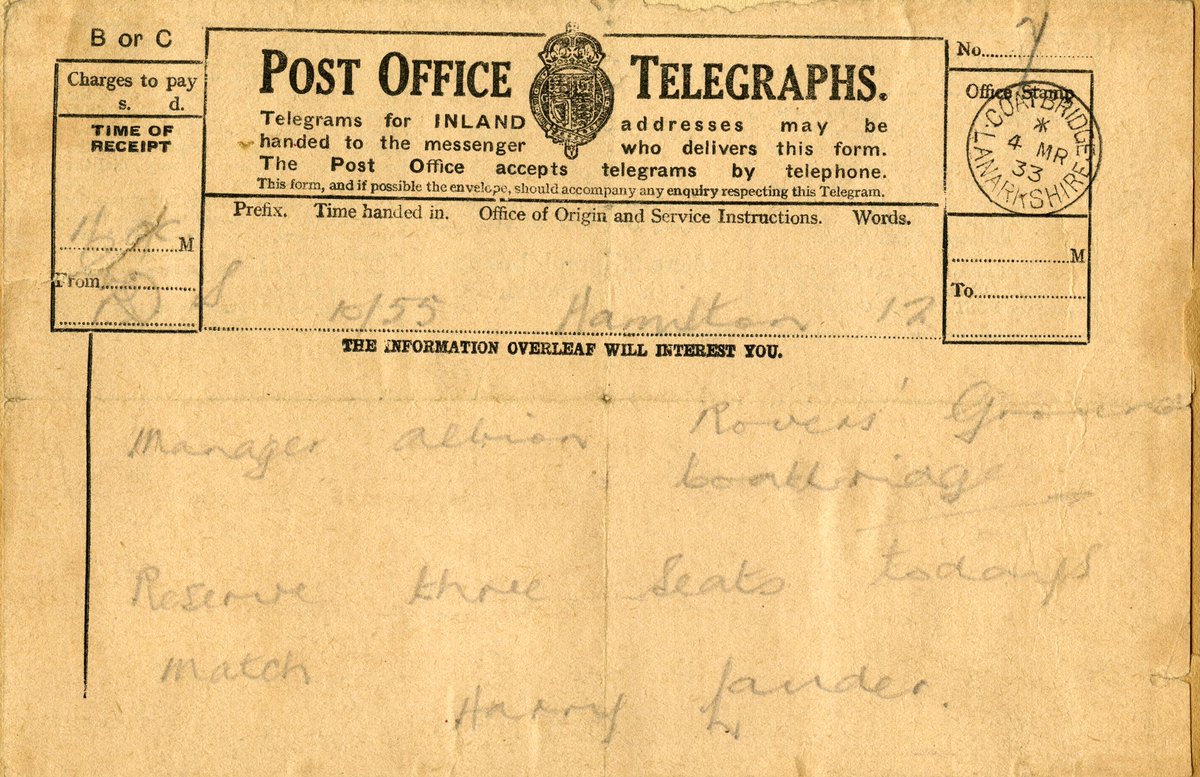 B or C
Charges to pay
s. d.
TIME OF
RECEIPT
M
From
POST OFFICE TELEGRAPHS.
Telegrams for INLAND addresses may be
handed to the messenger who delivers this form.
The Post Office accepts telegrams by telephone.
This form, and if possible the envelope, should accompany any enquiry respecting this Telegram.
Prefix. Time handed in. Office of Origin and Service Instructions. Words.
S Hamilton 12
No.
Office Stamp
COATBRIDGE
4 MR
33
LANARKSHIRE
M
To
THE INFORMATION OVERLEAF WILL INTEREST YOU.
Manager Albion Rovers' Ground
Coatbridge
Reserve three seats todays
Match
Harry Lauder